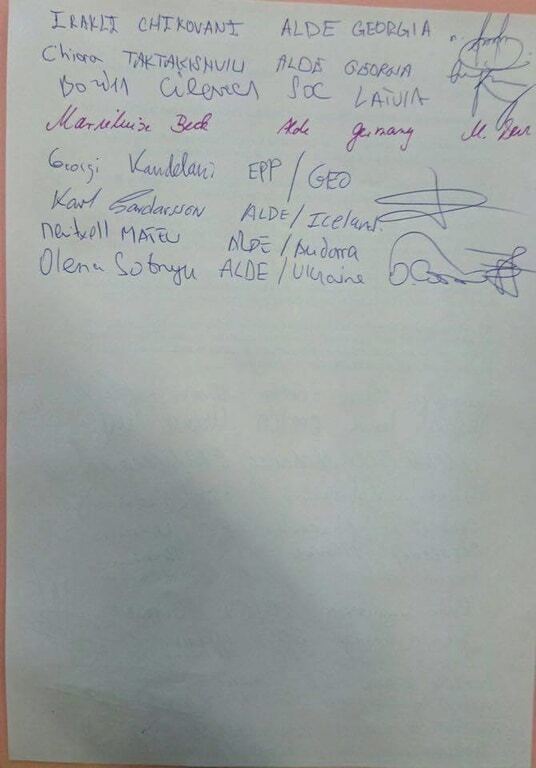 IRAKLI CHIKOVANI ALDE GEORGIA
Chiora TAKTAKISHVILI ALDE GEORGIA
Boriss Cilevics SOC LATVIA
Marieluise Beck Alde germany M. Beck
Giorgi Kandelaki EPP/GEO
Karl Gardarsson ALDE/Iceland.
Meritxell MATEU ALDE/Andorra
Olena Sotnyk ALDE/Ukraine